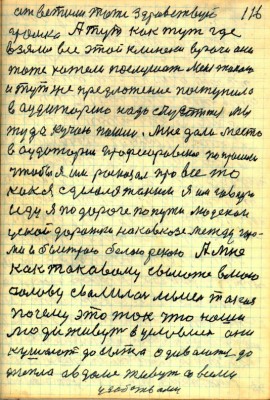 ответили тоже здравствуй 116
громко А тут как тут где
взялись все этой клиники врачи они
тоже хотели послушать меня
и тут же предложение поступило
в аудиторию надо мы
туда кучею пошли, Мне дали место
в аудитории попросили
чтобы я им рассказал про всё то
какая сделалась я им говорю
иду я по дороге по пути людской
узкой дорожки на Кавказе между гора
ми и быстрою белою рекою А мне
как таковому свыше в мою
голову свалилась мысля такая
почему это так что наши
люди живут в условиях они
кушают до сыта одеваются до
тепла в доме живут со всеми
удобствами